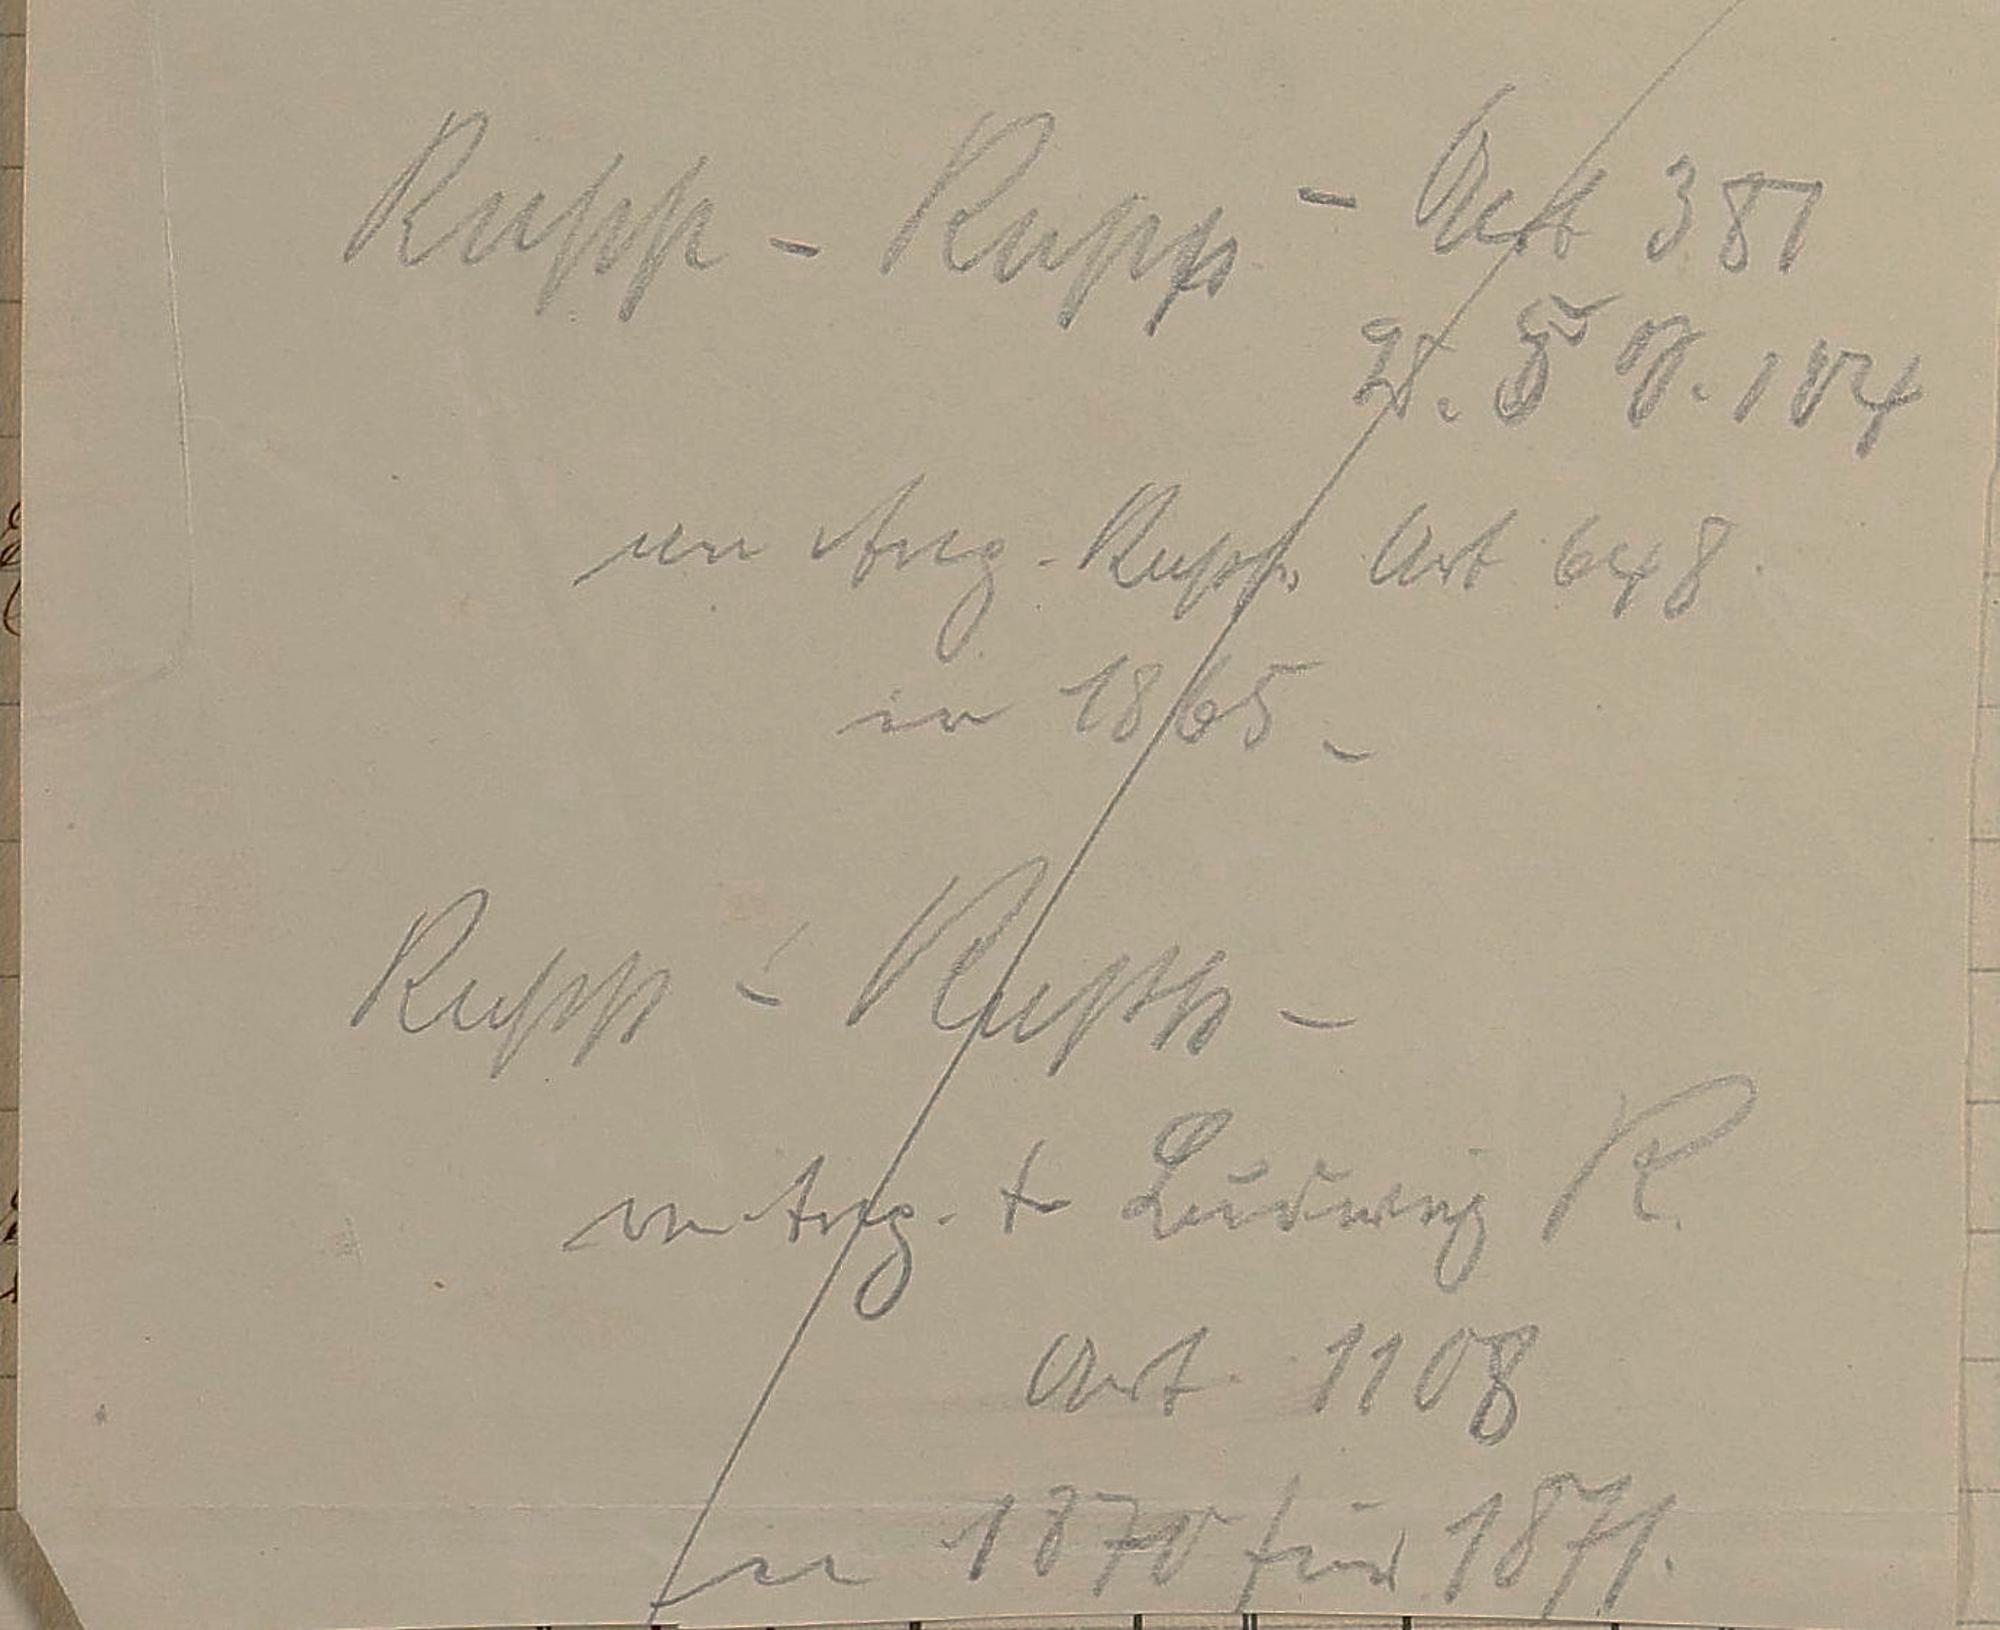 Rupp - Rupp - Art 381
104
Aug. Rupp. Art 648
in 1865 -
Rupp - Rupp -
Aug. Ludwig R.
Art. 1108
in 1870 für 1871.